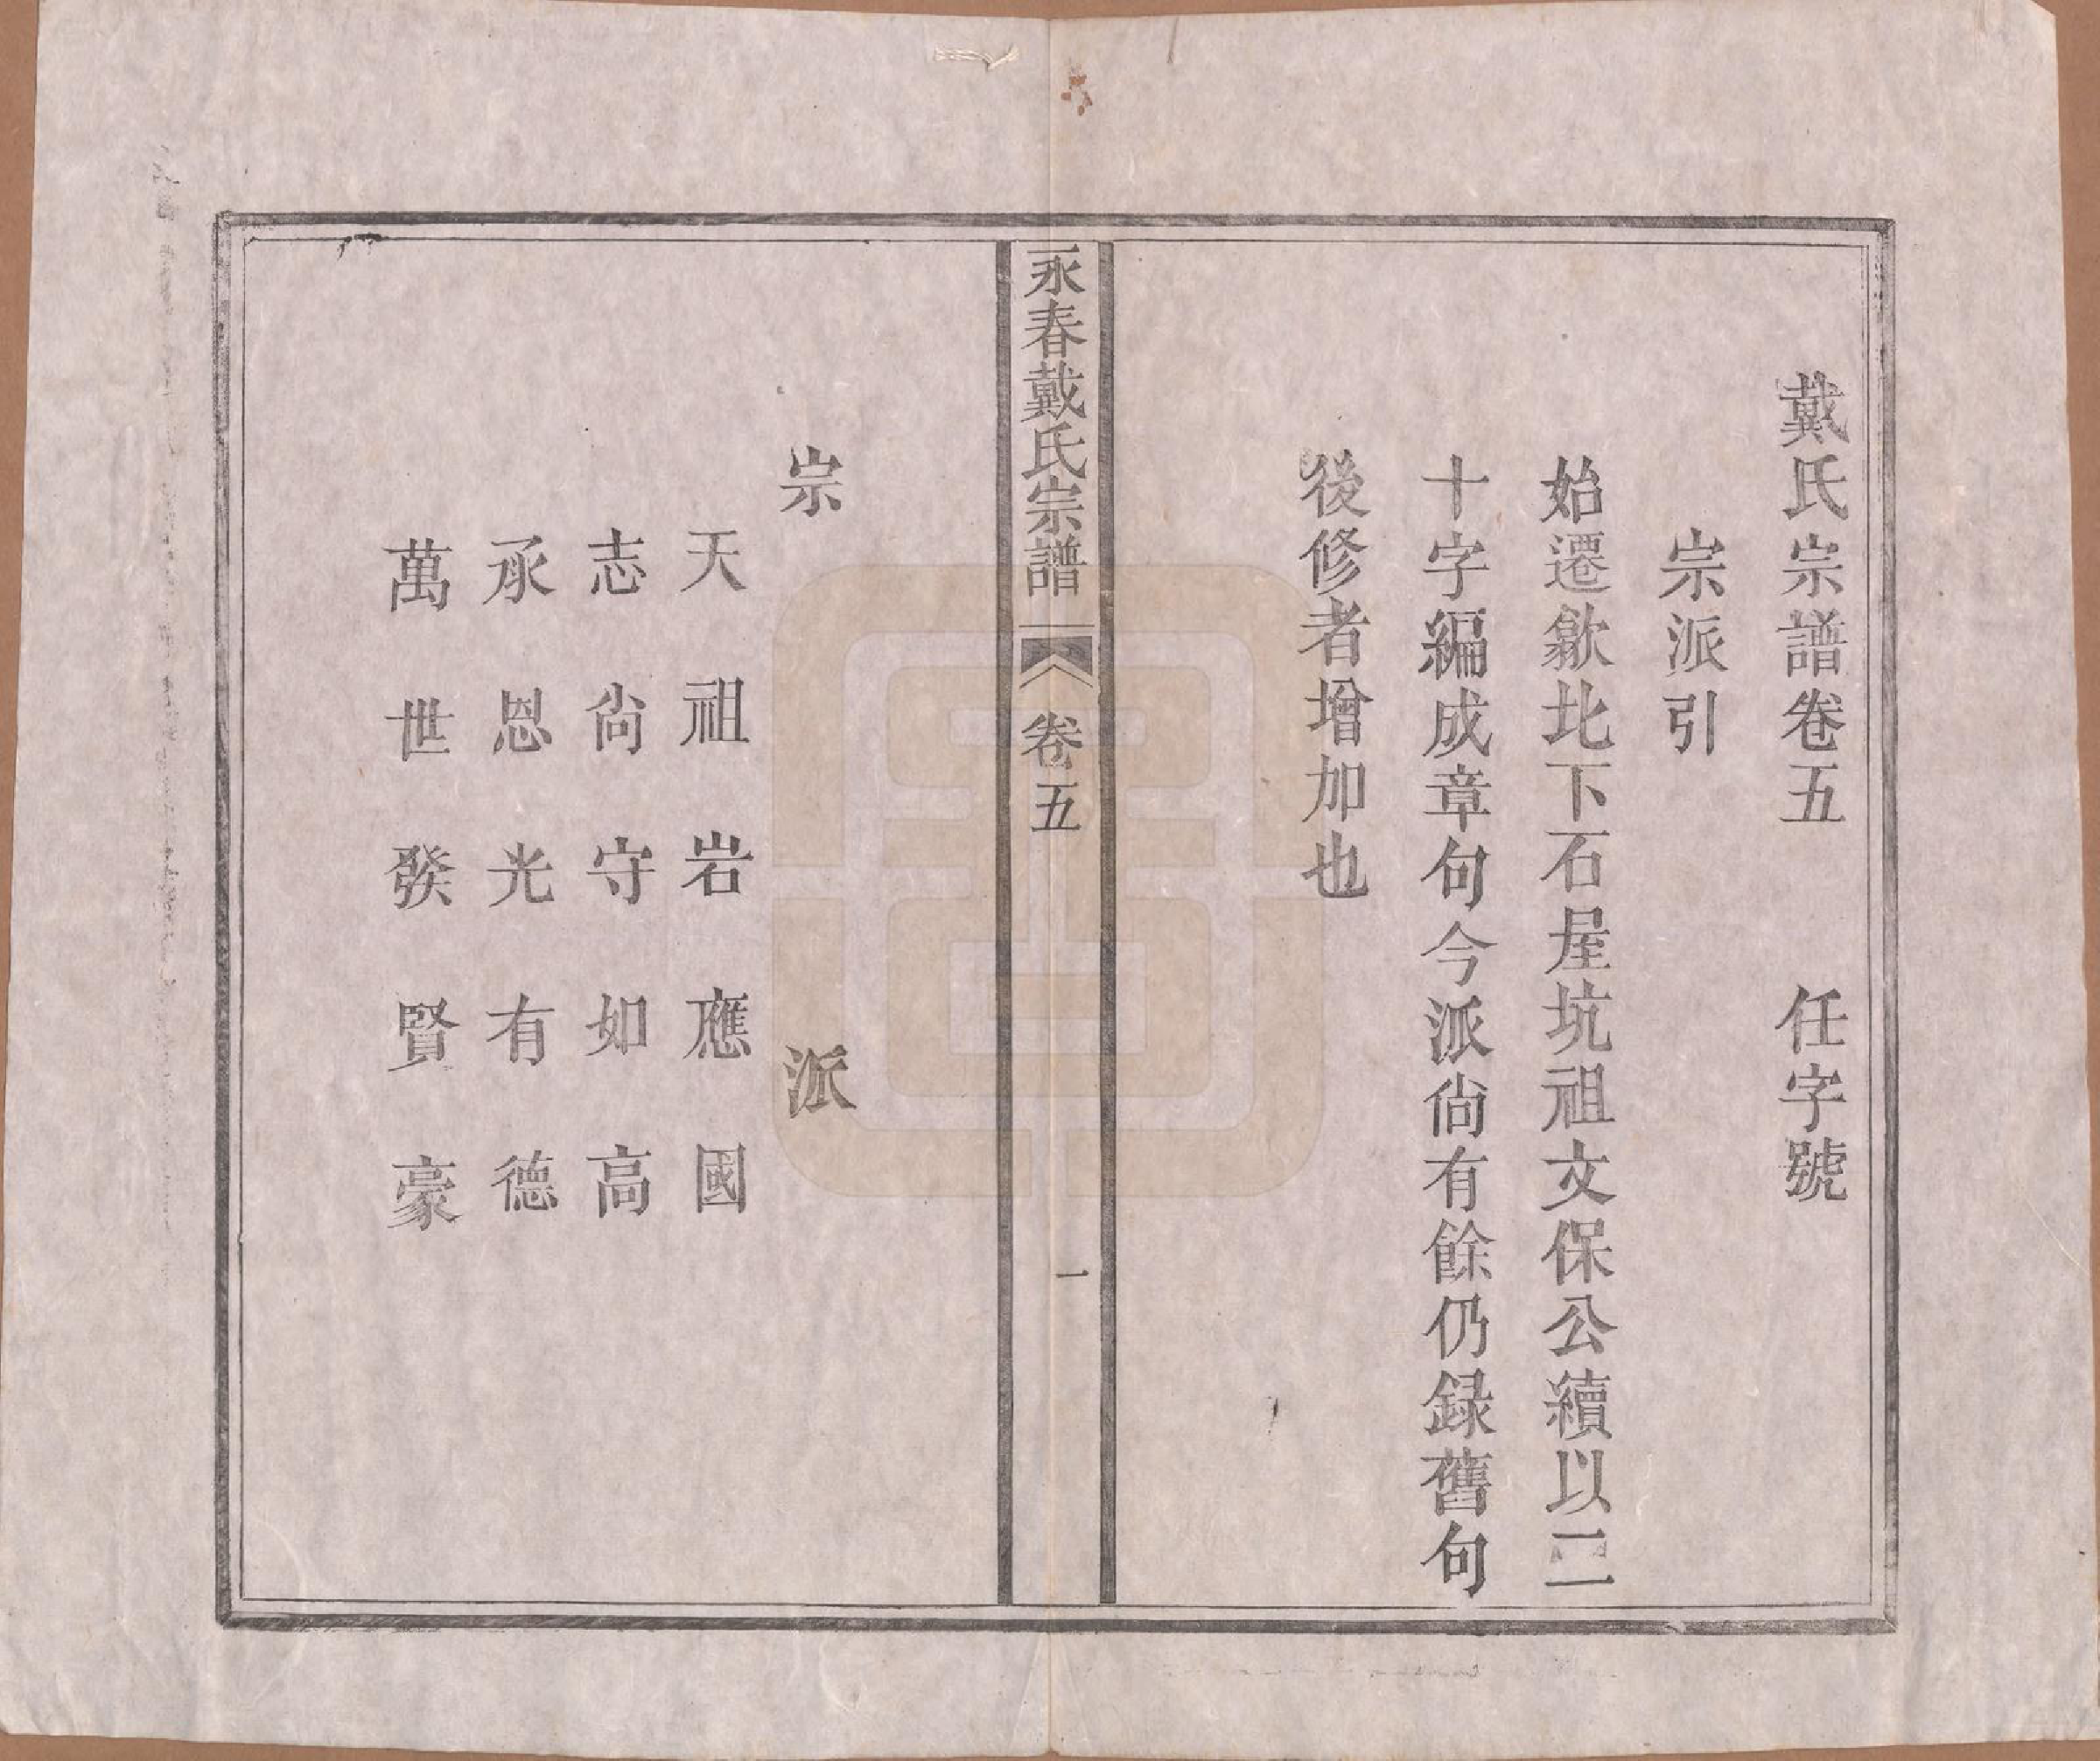 戴氏宗譜卷五　任字號
宗派引
始遷歙北下石屋坑祖文保公續以二
十字編成章句今派尙有餘仍録舊句
後修者增加也
永春戴氏宗譜　卷五　一
宗　派
天祖岩應國
志尙守如高
承恩光有德
萬世發賢豪